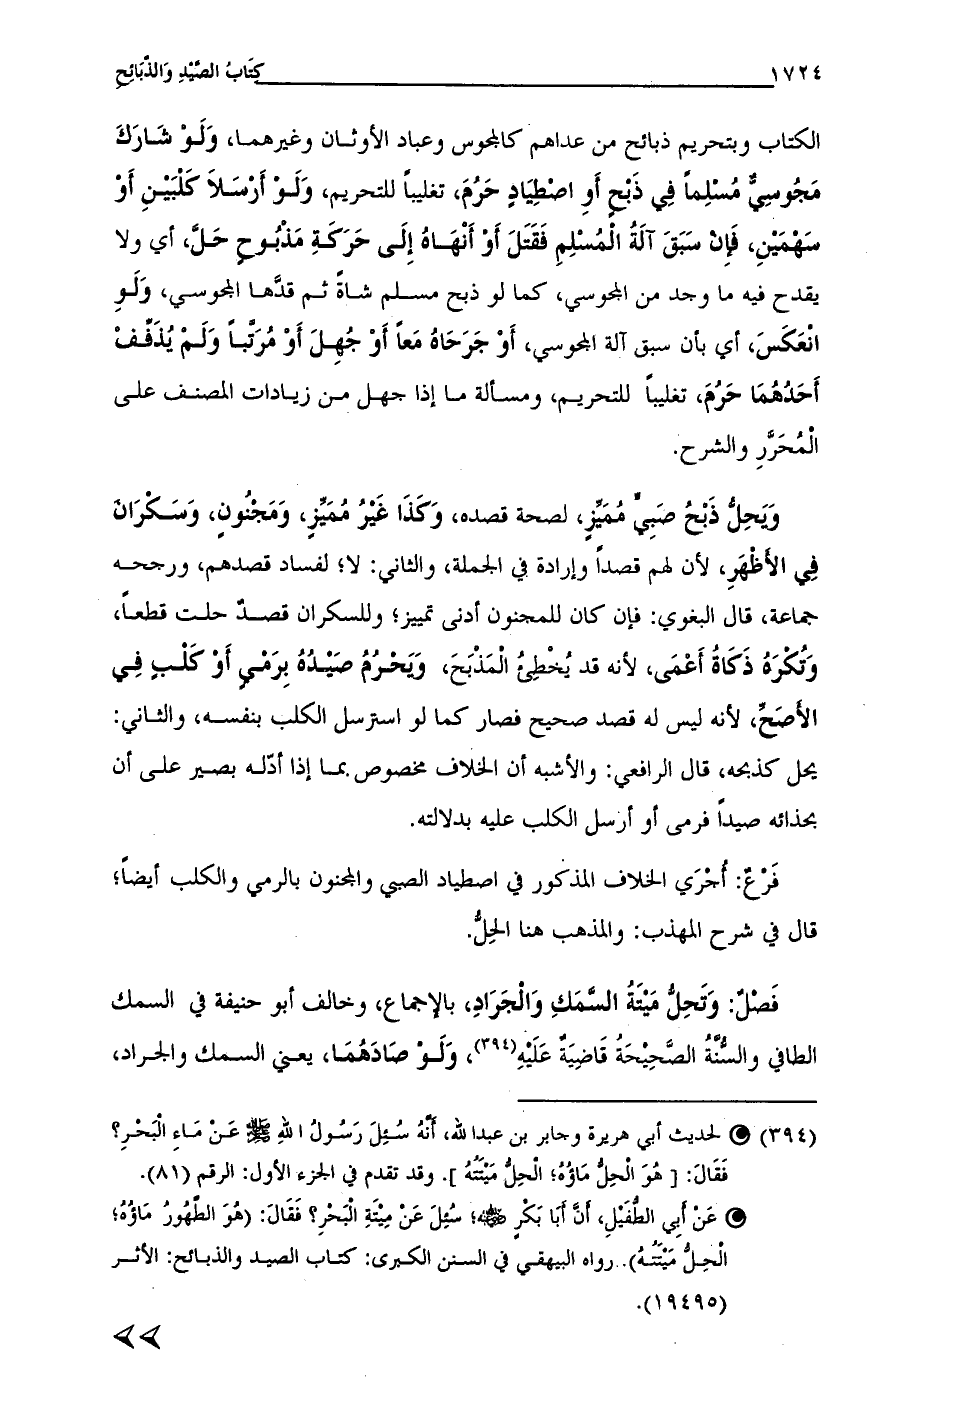 ١٧٢٤ كِتَابُ الصَّيْدِ وَالذَّبَائِحِ
الكتاب وبتحريم ذبائح من عداهم كالمجوس وعباد الأوثـان وغيرهمـا، وَلَـوْ شَـارَكَ
مَجُوسِيٌّ مُسْلِماً فِي ذَبْحٍ أَوِ اصْطِيَادٍ حَرُمَ، تغليباً للتحريم، وَلَوْ أَرْسَـلاَ كَلْبَيْـنِ أَوْ
سَهْمَيْنِ، فَإِنْ سَبَقَ آلَةُ الْمُسْلِمِ فَقَتَلَ أَوْ أَنْهَـاهُ إِلَـى حَرَكَـةِ مَذْبُـوحٍ حَـلَّ، أي ولا
يقدح فيه ما وجد من المجوسي، كما لو ذبح مسـلم شـاةً ثـم قدَّهـا المجوسـي، وَلَـوِ
انْعَكَسَ، أي بأن سبق آلة المجوسي، أَوْ جَرَحَاهُ مَعاً أَوْ جُهِلَ أَوْ مُرَتَّبـاً وَلَـمْ يُذَفِّـفْ
أَحَدُهُمَا حَرُمَ، تغليباً للتحريـم، ومسـألة مـا إذا جهـل مـن زيـادات المصنـف علـى
الْمُحَرَّرِ والشرح.
وَيَحِلُّ ذَبْحُ صَبِيٍّ مُمَيِّزٍ، لصحة قصده، وَكَذَا غَيْرُ مُمَيِّزٍ، وَمَجْنُونٍ، وَسَـكْرَانَ
فِي الأَظْهَرِ، لأن لهم قصداً وإرادة في الجملة، والثاني: لا؛ لفساد قصدهم، ورجحـه
جماعة، قال البغوي: فإن كان للمجنون أدنى تمييز؛ وللسكران قصدٌ حلـت قطعـاً،
وَتُكْرَهُ ذَكَاةُ أَعْمَى، لأنه قد يُخْطِئُ الْمَذْبَحَ، وَيَحْرُمُ صَيْدُهُ بِرَمْيٍ أَوْ كَلْـبٍ فِـي
الأَصَحِّ، لأنه ليس له قصد صحيح فصار كما لو استرسل الكلب بنفسـه، والثـاني:
يحل كذبحه، قال الرافعي: والأشبه أن الخلاف مخصوص بمـا إذا أدّلـه بصـير علـى أن
بحذائه صيداً فرمى أو أرسل الكلب عليه بدلالته.
فَرْعٌ: أُجْرَي الخلاف المذكور في اصطياد الصبي والمجنون بالرمي والكلب أيضـاً؛
قال في شرح المهذب: والمذهب هنا الحِلُّ.
فَصْلٌ: وَتَحِلُّ مَيْتَةُ السَّمَكِ وَالْجَرَادِ، بالإجماع، وخالف أبو حنيفة في السمك
الطافي والسُّنَّةُ الصَّحِيْحَةُ قَاضِيَةٌ عَلَيْهِ(٣٩٤)، وَلَـوْ صَادَهُمَـا، يعـني السـمك والجـراد،
(٣٩٤) لحديث أبي هريرة وجابر بن عبدا لله، أَنَّهُ سُـئِلَ رَسُـولُ اللهِ ﷺ عَـنْ مَـاءِ الْبَحْـرِ؟
فَقَالَ: [ هُوَ الْحِلُّ مَاؤُهُ؛ الْحِلُّ مَيْتَتَهُ ]. وقد تقدم في الجزء الأول: الرقم (٨١).
عَنْ أَبِي الطُّفَيْلِ، أَنَّ أَبَا بَكْرٍ ﷺ؛ سُئِلَ عَنْ مِيْتَةِ الْبَحْرِ؟ فَقَالَ: (هُوَ الطَّهُورُ مَاؤُهُ؛
الْحِلُّ مَيْتَتُـهُ).. رواه البيهقـي في السـنن الكـبرى: كتـاب الصيـد والذبـائح: الأثـر
(١٩٤٩٥).